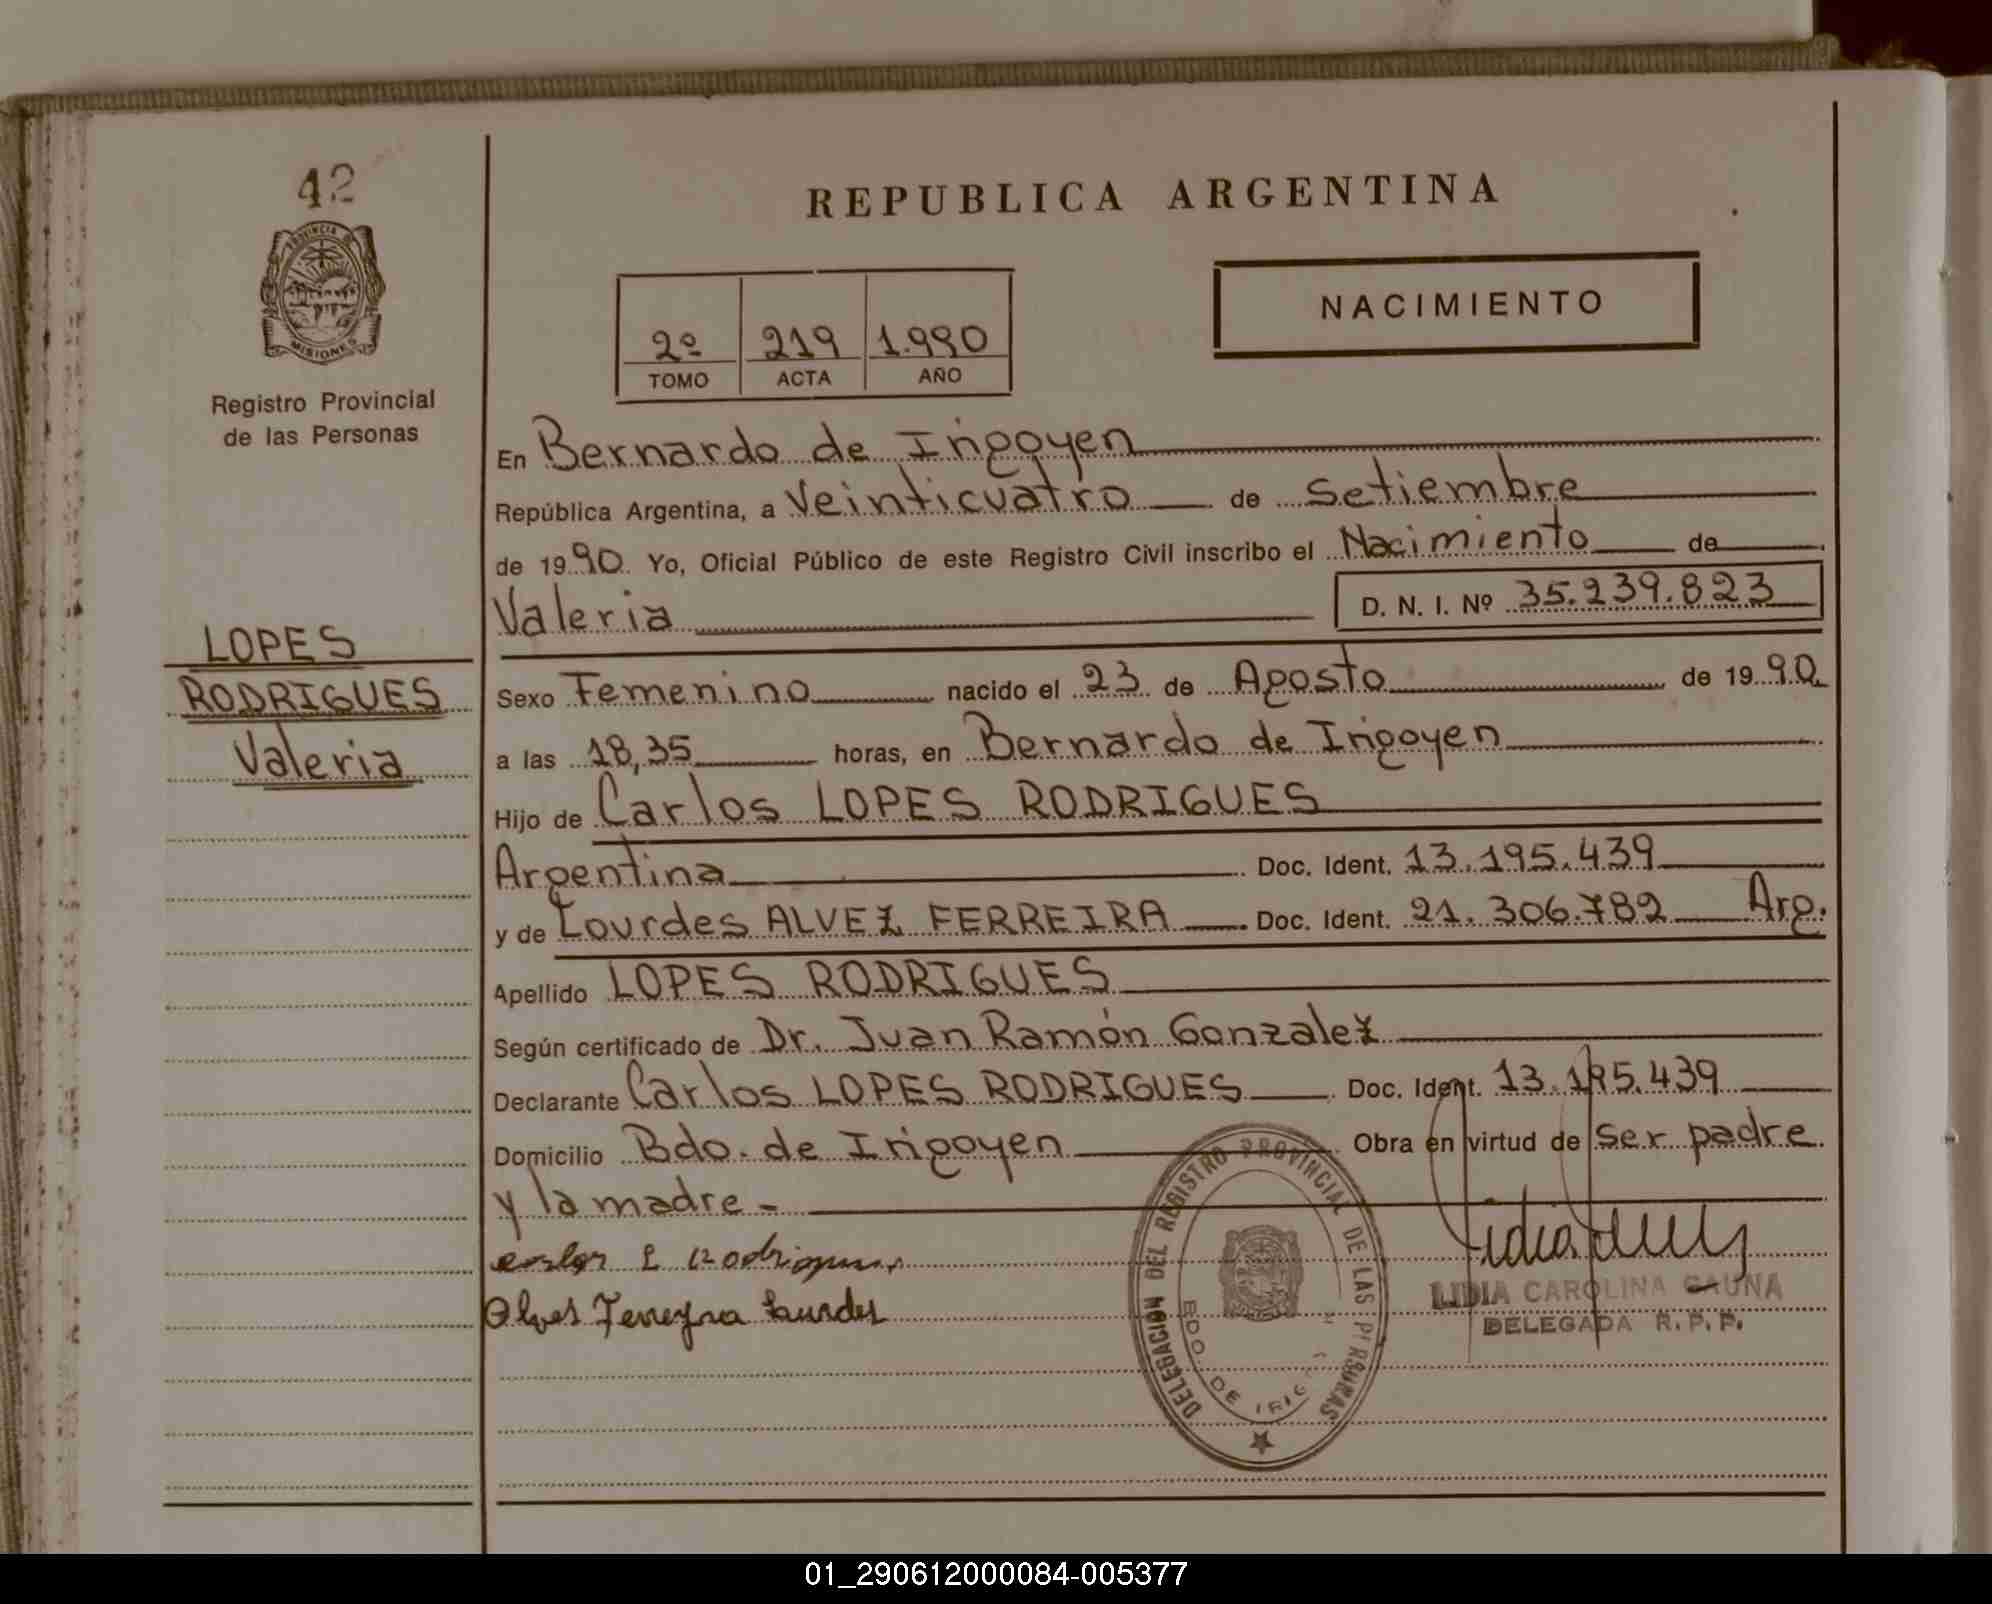 42
PROVINCIA DE
MISIONES
Registro Provincial
de las Personas
LOPES
RODRIGUES
Valeria
REPUBLICA ARGENTINA
2º 219 1.990
TOMO ACTA AÑO
NACIMIENTO
En Bernardo de Irigoyen
República Argentina, a Veinticuatro de Setiembre
de 1990 Yo, Oficial Público de este Registro Civil inscribo el Nacimiento de
Valeria D. N. I. Nº 35.239.823
Sexo Femenino nacido el 23 de Agosto de 1990
a las 18,35 horas, en Bernardo de Irigoyen
Hijo de Carlos LOPES RODRIGUES
Argentina Doc. Ident. 13.195.439
y de Lourdes ALVEZ FERREIRA Doc. Ident. 21.306.782 Arg.
Apellido LOPES RODRIGUES
Según certificado de Dr. Juan Ramón Gonzalez
Declarante Carlos LOPES RODRIGUES Doc. Ident. 13.195.439
Domicilio Bdo. de Irigoyen Obra en virtud de ser padre
y la madre -
carlos L Rodrigues
Alves Ferreyra Lourdes
DELEGACION DEL REGISTRO PROVINCIAL DE LAS PERSONAS
BDO. DE IRIG
LIDIA CAROLINA GAUNA
DELEGADA R.P.P.
01_290612000084-005377